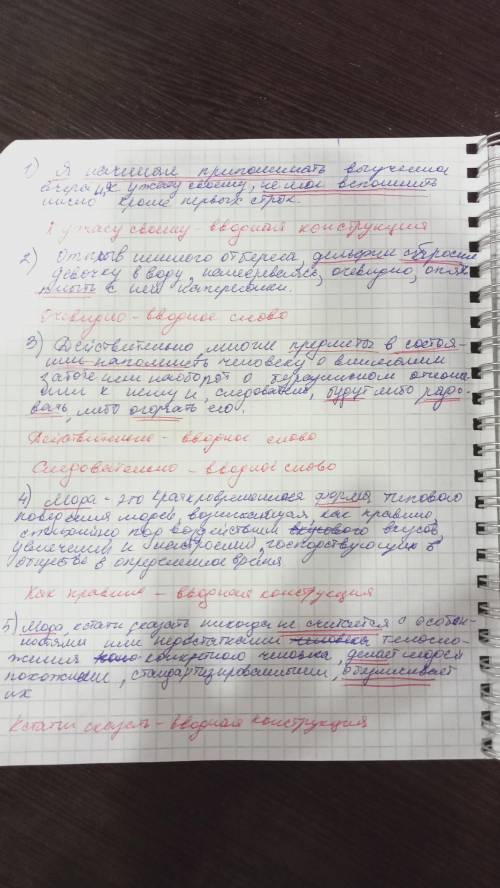 1) Я начинаю припоминать выученное
вчера и, к ужасу своему, не могу вспомнить
ничего кроме первых строк.
К ужасу своему - вводная конструкция
2) Отплыв немного от берега, дельфин сбросил
девочку в воду, намереваясь, очевидно, опять
плыть с ней наперегонки.
Очевидно - вводное слово
3) Действительно, многие предметы в состоя-
нии напомнить человеку о внимании
заботе или наоборот о безразличном отноше
нии к нему и, следовательно, будут либо радо-
вать, либо огорчать его.
Действительно - вводное слово
Следовательно - вводное слово
4) Мода - это кратковременная форма типового
поведения людей, возникающая как правило
стихийно под воздействием вкусового вкусов,
увлечений и настроений, господствующих в
обществе в определенное время
Как правило - вводная конструкция
5) Мода, кстати сказать никогда не считается с особен-
ностями или недостатками человека телосло-
жения конкретного человека, делает людей
похожими, стандартизированными, обезличивает
их
Кстати сказать - вводная конструкция